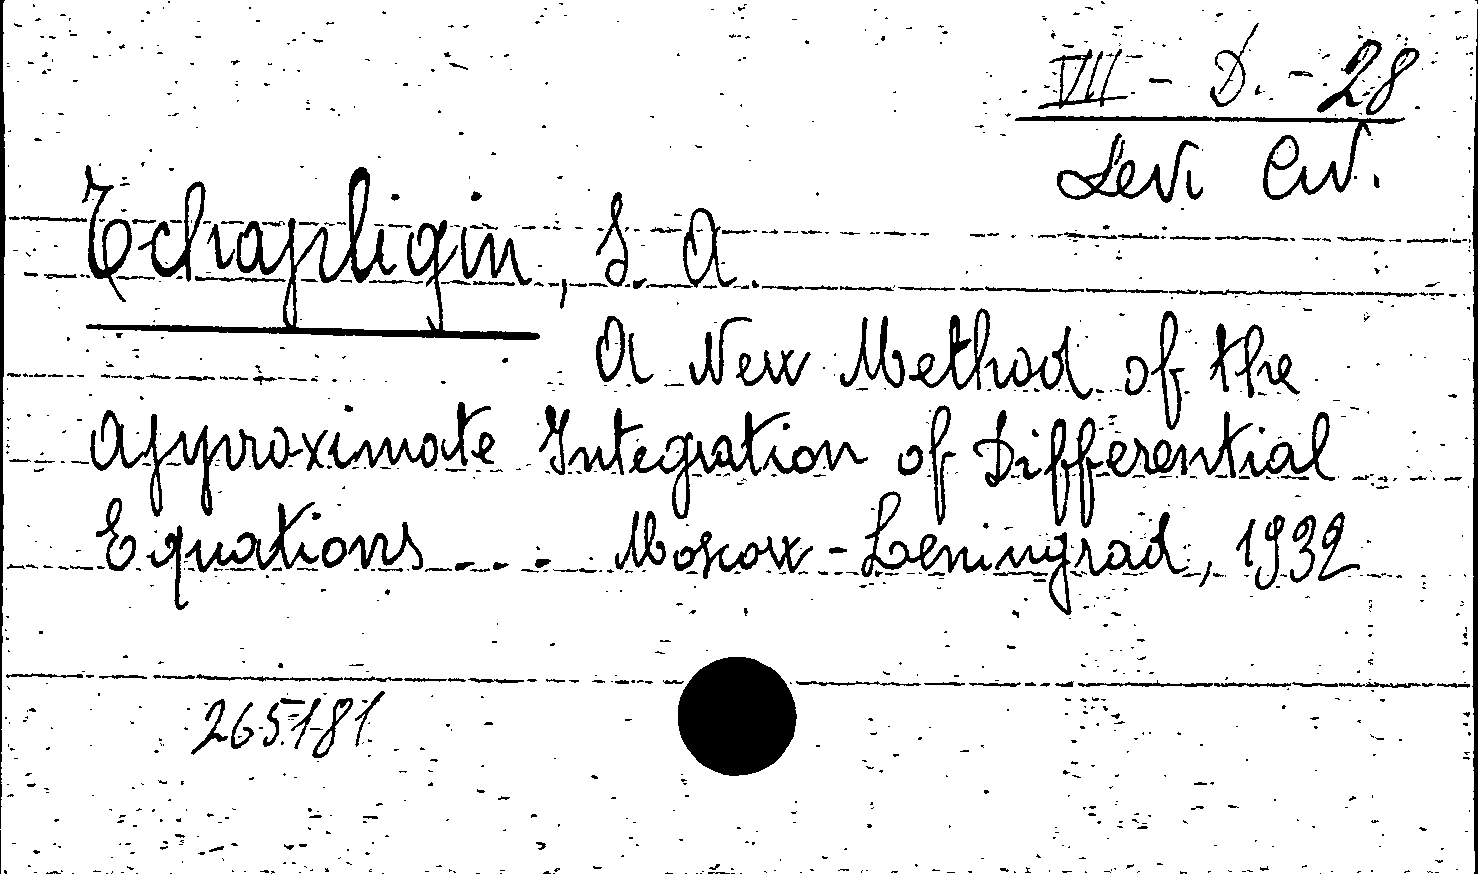 VII - D. - 28
Levi Civ.
Tchapligin, S. A.
A New Method of the
Approximate Integration of Differential
Equations ... Moscow - Leningrad, 1932
265181